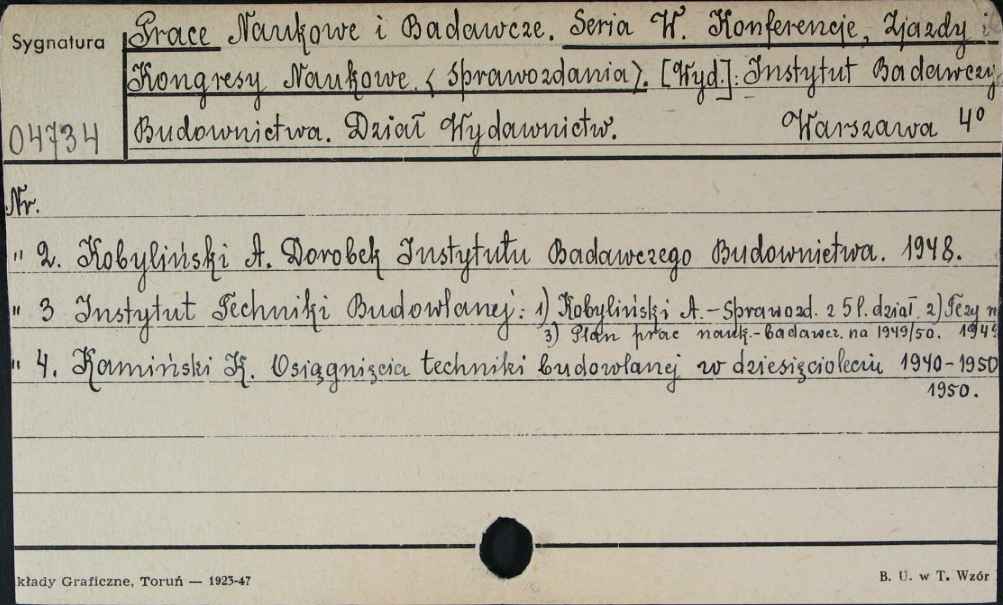 Sygnatura
Prace Naukowe i Badawcze. Seria W. Konferencje, Zjazdy i
Kongresy Naukowe. (Sprawozdania). [Wyd.]: Instytut Badawczy
04734
Budownictwa. Dział Wydawnictw. Warszawa 4º
Nr.
" 2. Kobyliński A. Dorobek Instytutu Badawczego Budownictwa. 1948.
" 3 Instytut Techniki Budowlanej: 1) Kobyliński A. - Sprawozd. z 5 l. dział. 2)
3) Plan prac nauk.-badawcz. na 1949/50. 1949
" 4. Kamiński K. Osiągnięcia techniki budowlanej w dziesięcioleciu 1940-1950
1950.
kłady Graficzne, Toruń — 1923-47
B. U. w T. Wzór